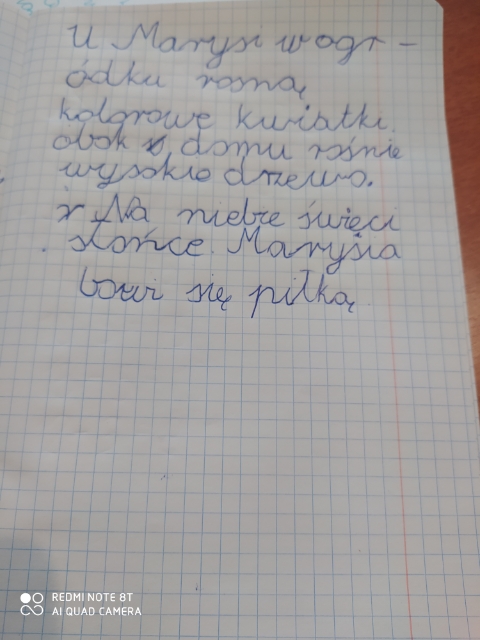 U Marysi w ogr-
ódku rosną
kolorowe kwiatki.
obok domu rośnie
wysokie drzewo.
Na niebie święci
słońce. Marysia
bawi się piłką
REDMI NOTE 8T
AI QUAD CAMERA